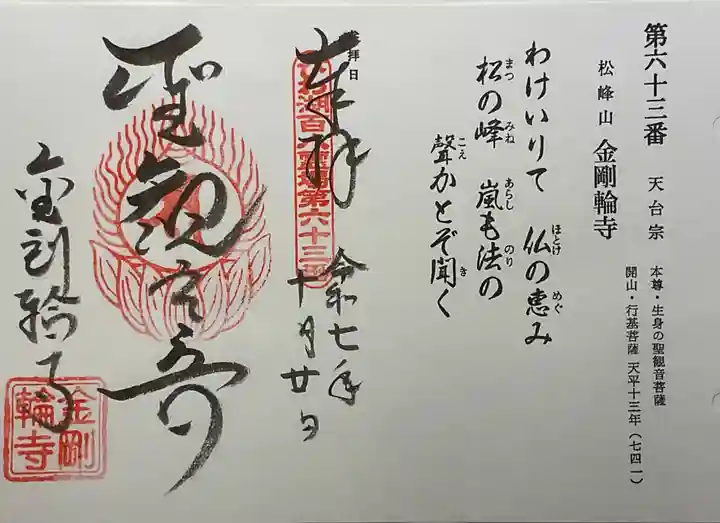 第六十三番 天台宗 本尊・生身の聖観音菩薩
松峰山 金剛輪寺 開山・行基菩薩 天平十三年(七四一)
わけいりて 仏の恵み
ほとけ めぐ
松の峰 嵐も法の
まつ みね あらし のり
聲かとぞ聞く
こえ き
参拝日
奉拝 令和七年
十月廿日
湖百八霊場第六十三番
聖観世音
金剛輪寺
金剛
輪寺